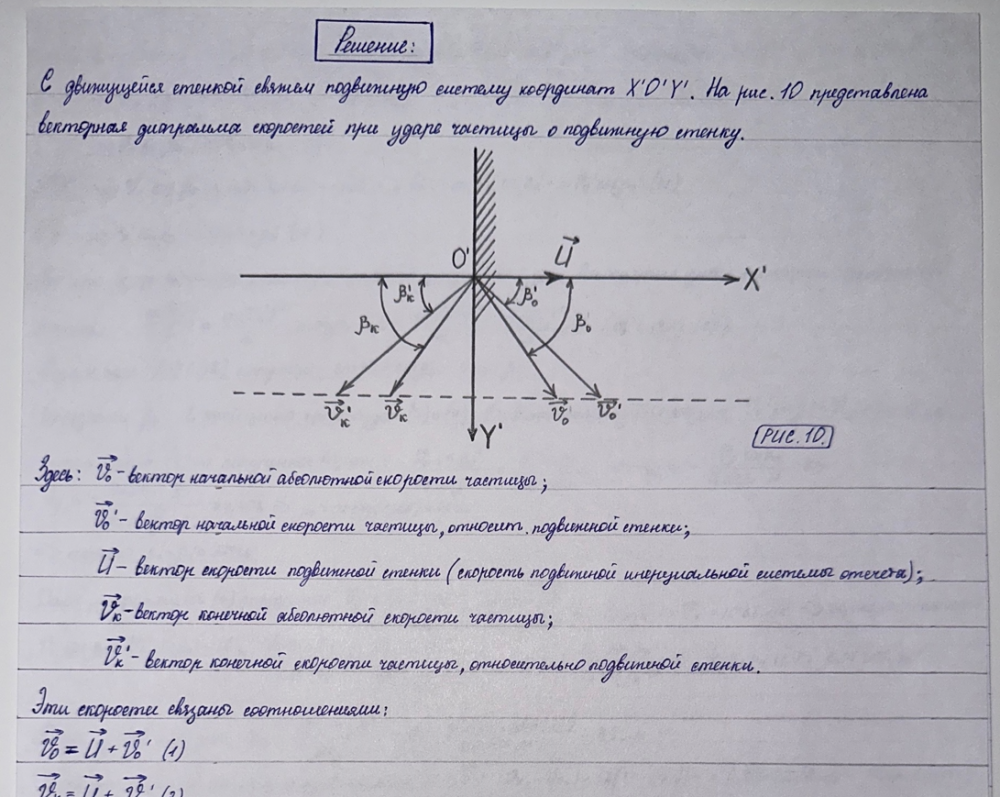 Решение:
С движущейся стенкой свяжем подвижную систему координат X'O'Y'. На рис. 10 представлена
векторная диаграмма скоростей при ударе частицы о подвижную стенку.
O' U⃗ X'
βк' β₀'
βк β₀
v⃗к' v⃗к v⃗₀ v⃗₀'
Y'
РИС. 10.
Здесь: v⃗₀ - вектор начальной абсолютной скорости частицы;
v⃗₀' - вектор начальной скорости частицы, относит. подвижной стенки;
U⃗ - вектор скорости подвижной стенки (скорость подвижной инерциальной системы отсчета);
v⃗к - вектор конечной абсолютной скорости частицы;
v⃗к' - вектор конечной скорости частицы, относительно подвижной стенки.
Эти скорости связаны соотношениями:
v⃗₀ = U⃗ + v⃗₀' (1)